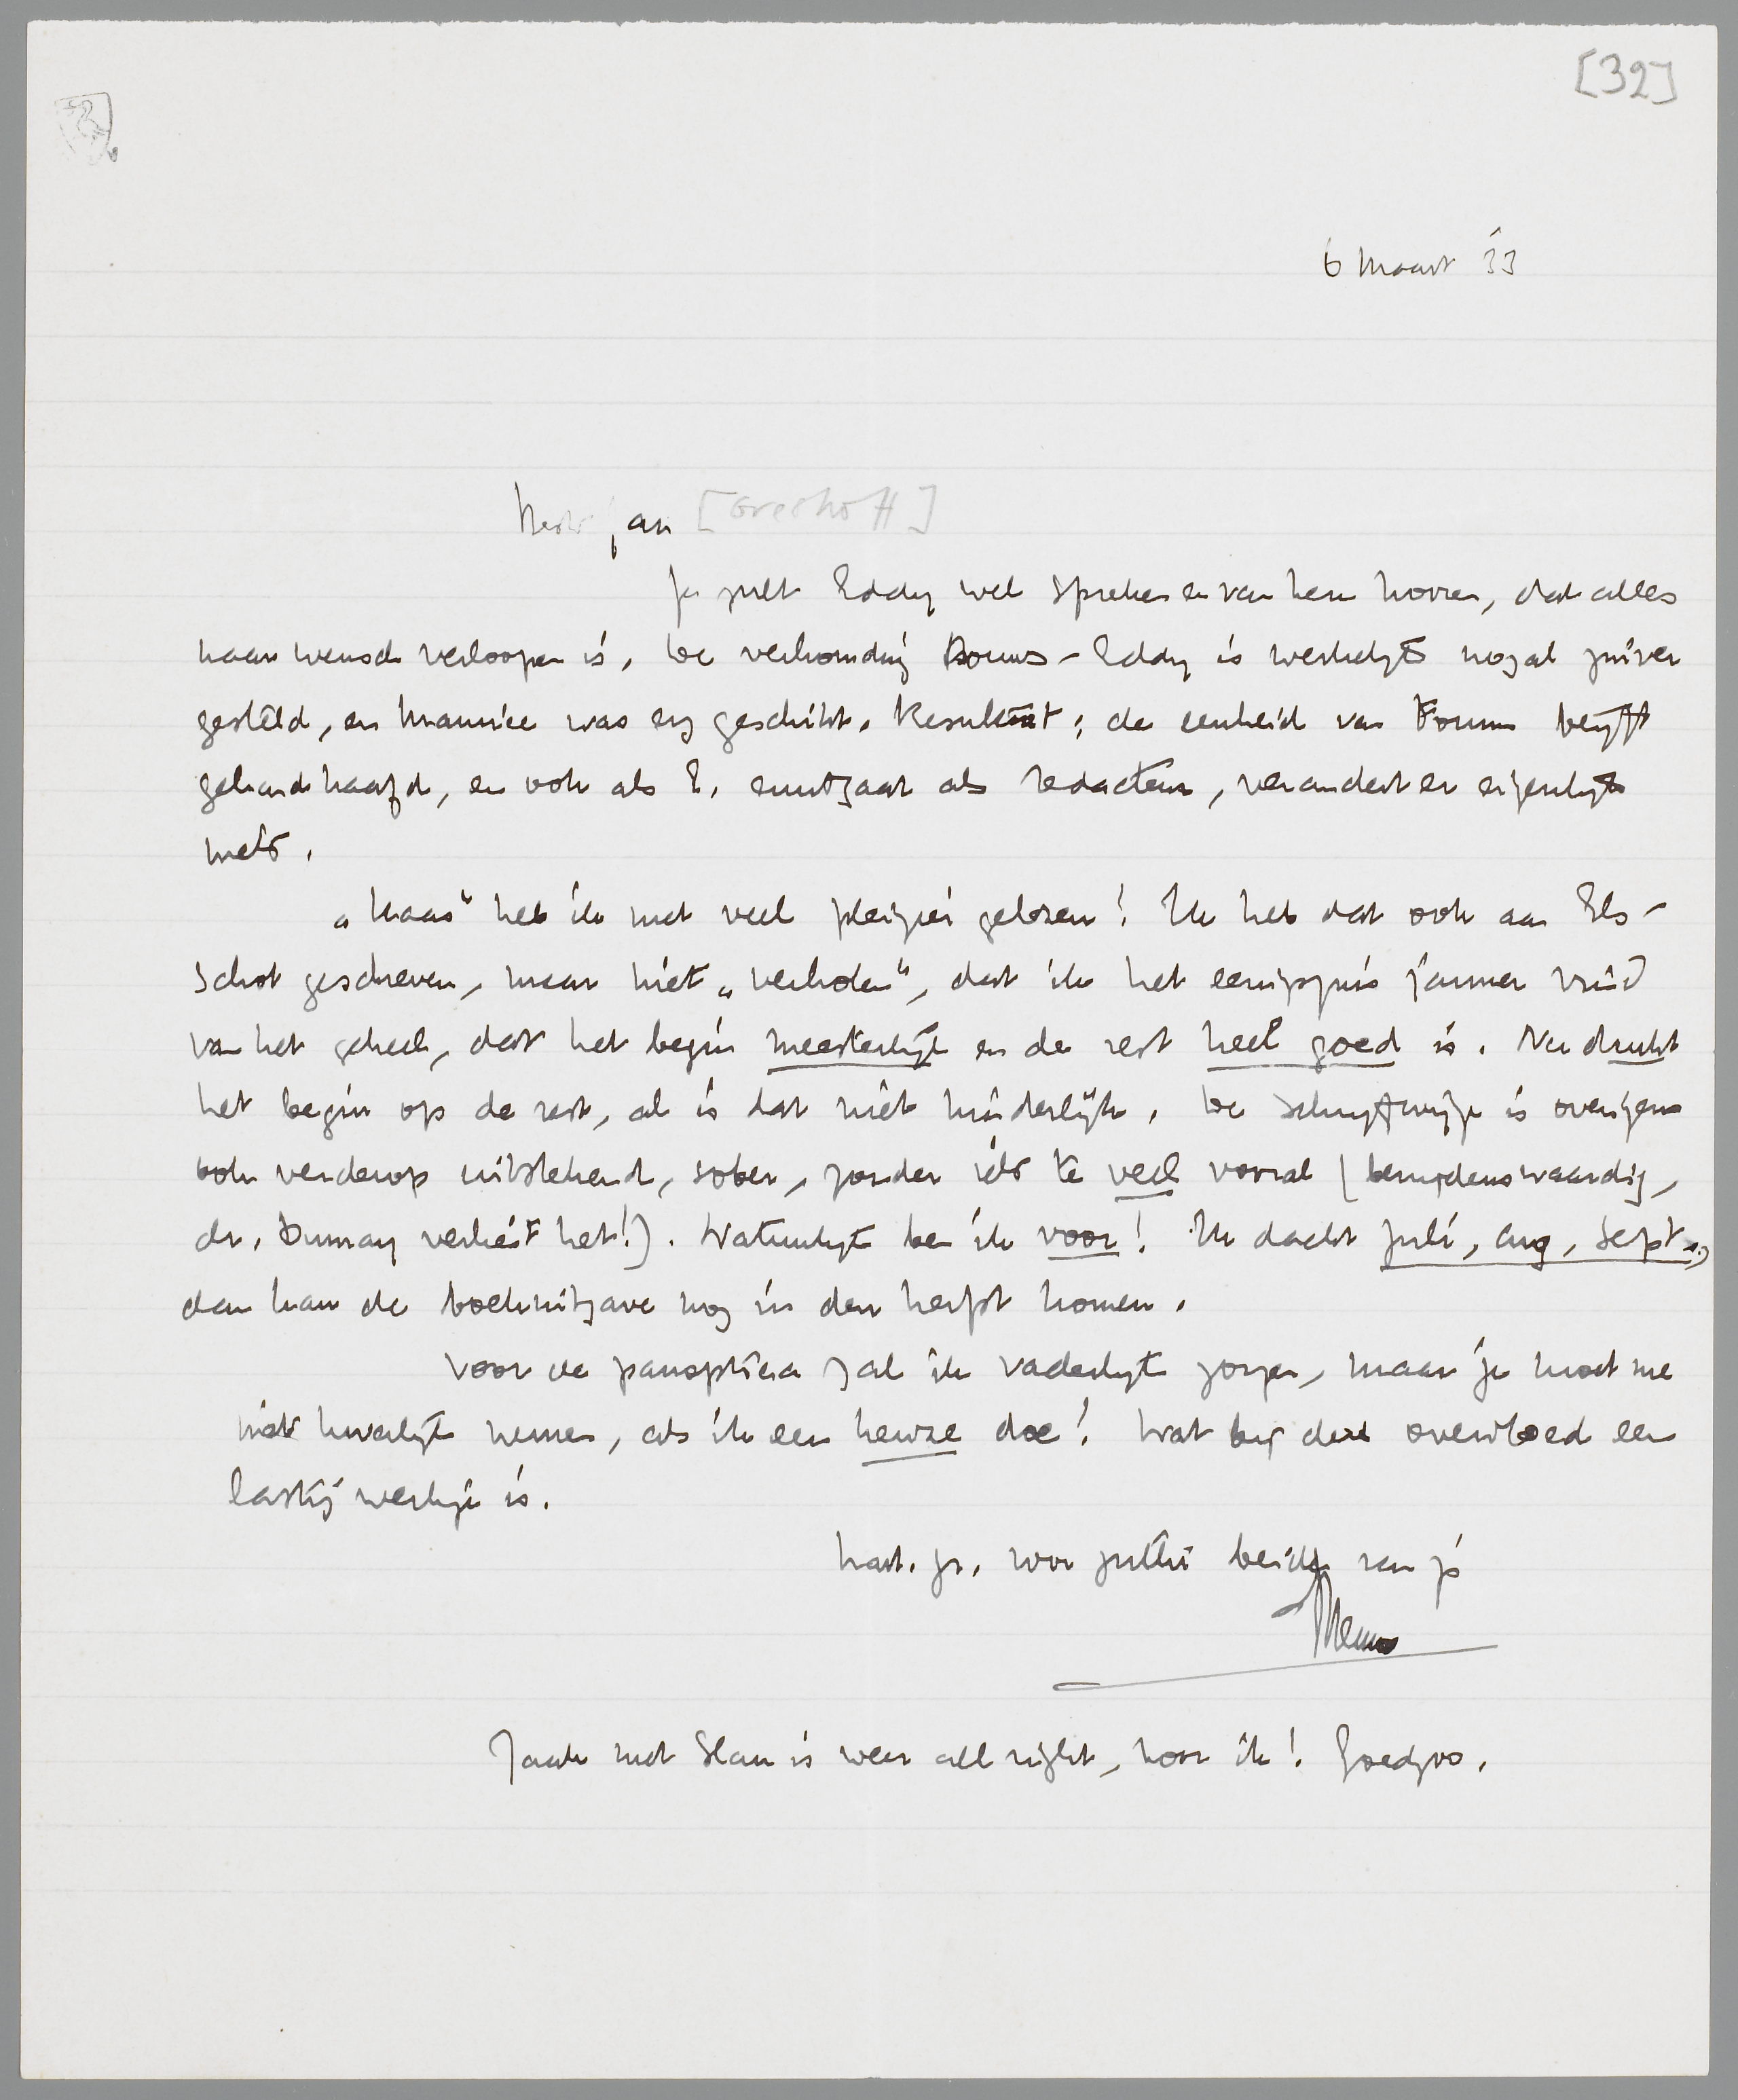 [32]
6 Maart 33
Beste Jan [Greshoff]
Je zult Eddy wel spreken en van hem hooren, dat alles
naar wensch verloopen is. De verhouding Bouws-Eddy is werkelijk nogal zuiver
gesteld, en Maurice was erg geschikt. Resultaat: de eenheid van Forum blijft
gehandhaafd, en ook als E. uitgaat als redacteur, verandert er eigenlijk
niets.
„Kaas" heb ik met veel pleizier gelezen! Ik heb dat ook aan Els-
schot geschreven, maar niet „verholen", dat ik het eenigszins jammer vind
van het geheel, dat het begin meesterlijk en de rest heel goed is. Nu drukt
het begin op de rest, al is dat niet hinderlijk. De schrijfwijze is overigens
ook verderop uitstekend, sober, zonder iets te veel vooral (benijdenswaardig,
dr. Dumay verliest het!). Natuurlijk ben ik voor! Ik dacht Juli, Aug, Sept.,
dan kan de boekuitgave nog in den herfst komen.
Voor de panoptica zal ik vaderlijk zorgen, maar je moet me
niet kwalijk nemen, als ik een keuze doe! Wat bij dezen overvloed een
lastig werkje is.
hart. gr. voor jullie beide van je
Menno
Zaak met Slau is weer all right, hoor ik! Goedzoo.